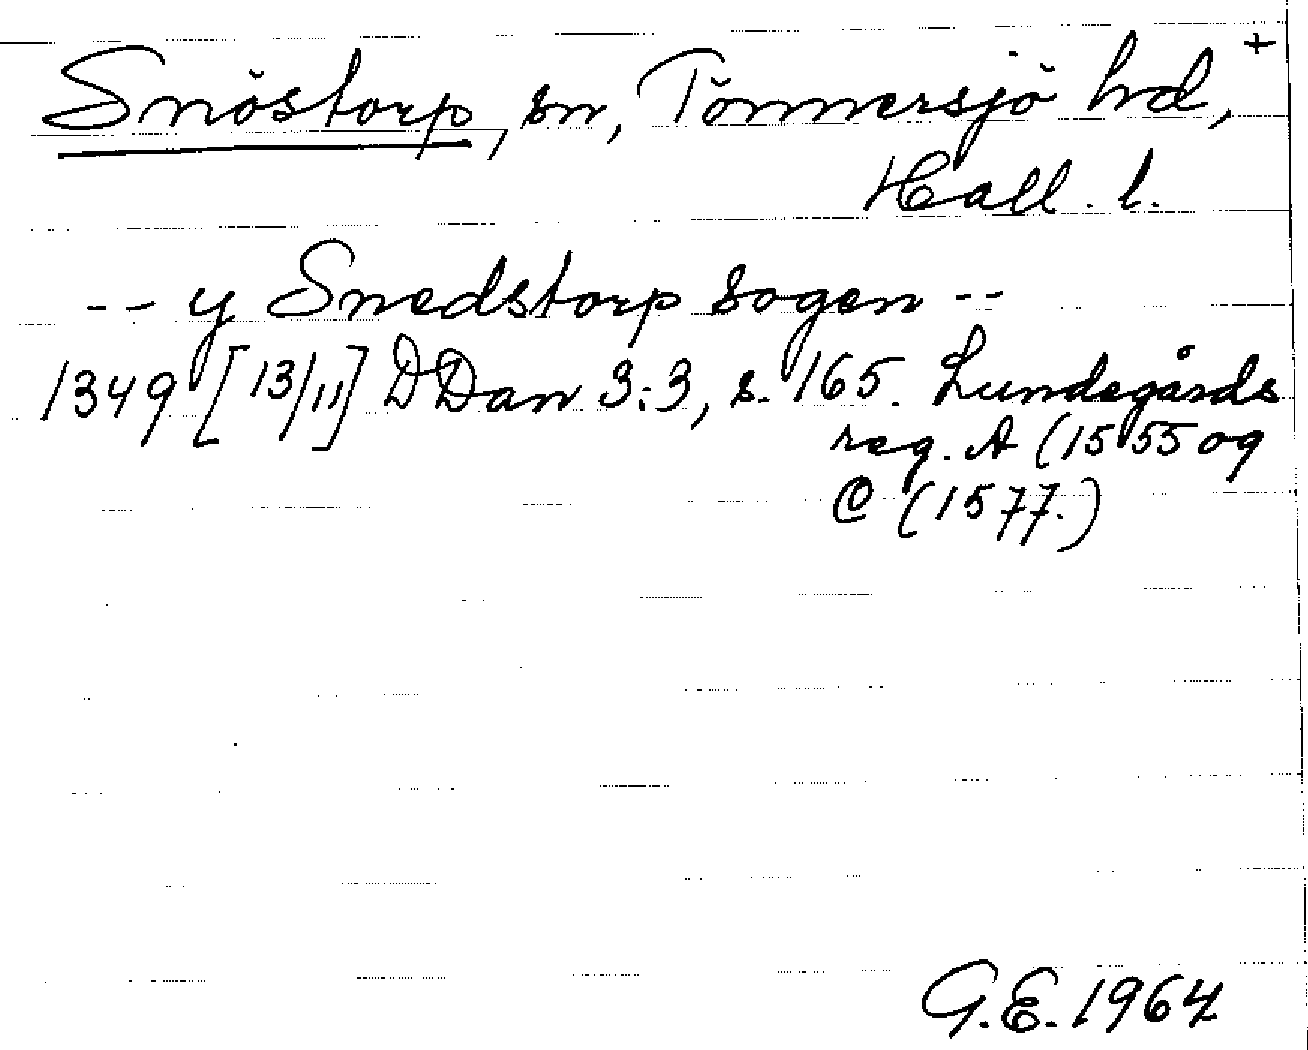 Snöstorp, sn, Tönnersjö hd, +
Hall. l.
-- y Snedstorp sogen --
1349 [13/11] DDan 3:3, s. 165. Lundegårds
reg. A (1555 og
C (1577.)
G.E. 1964